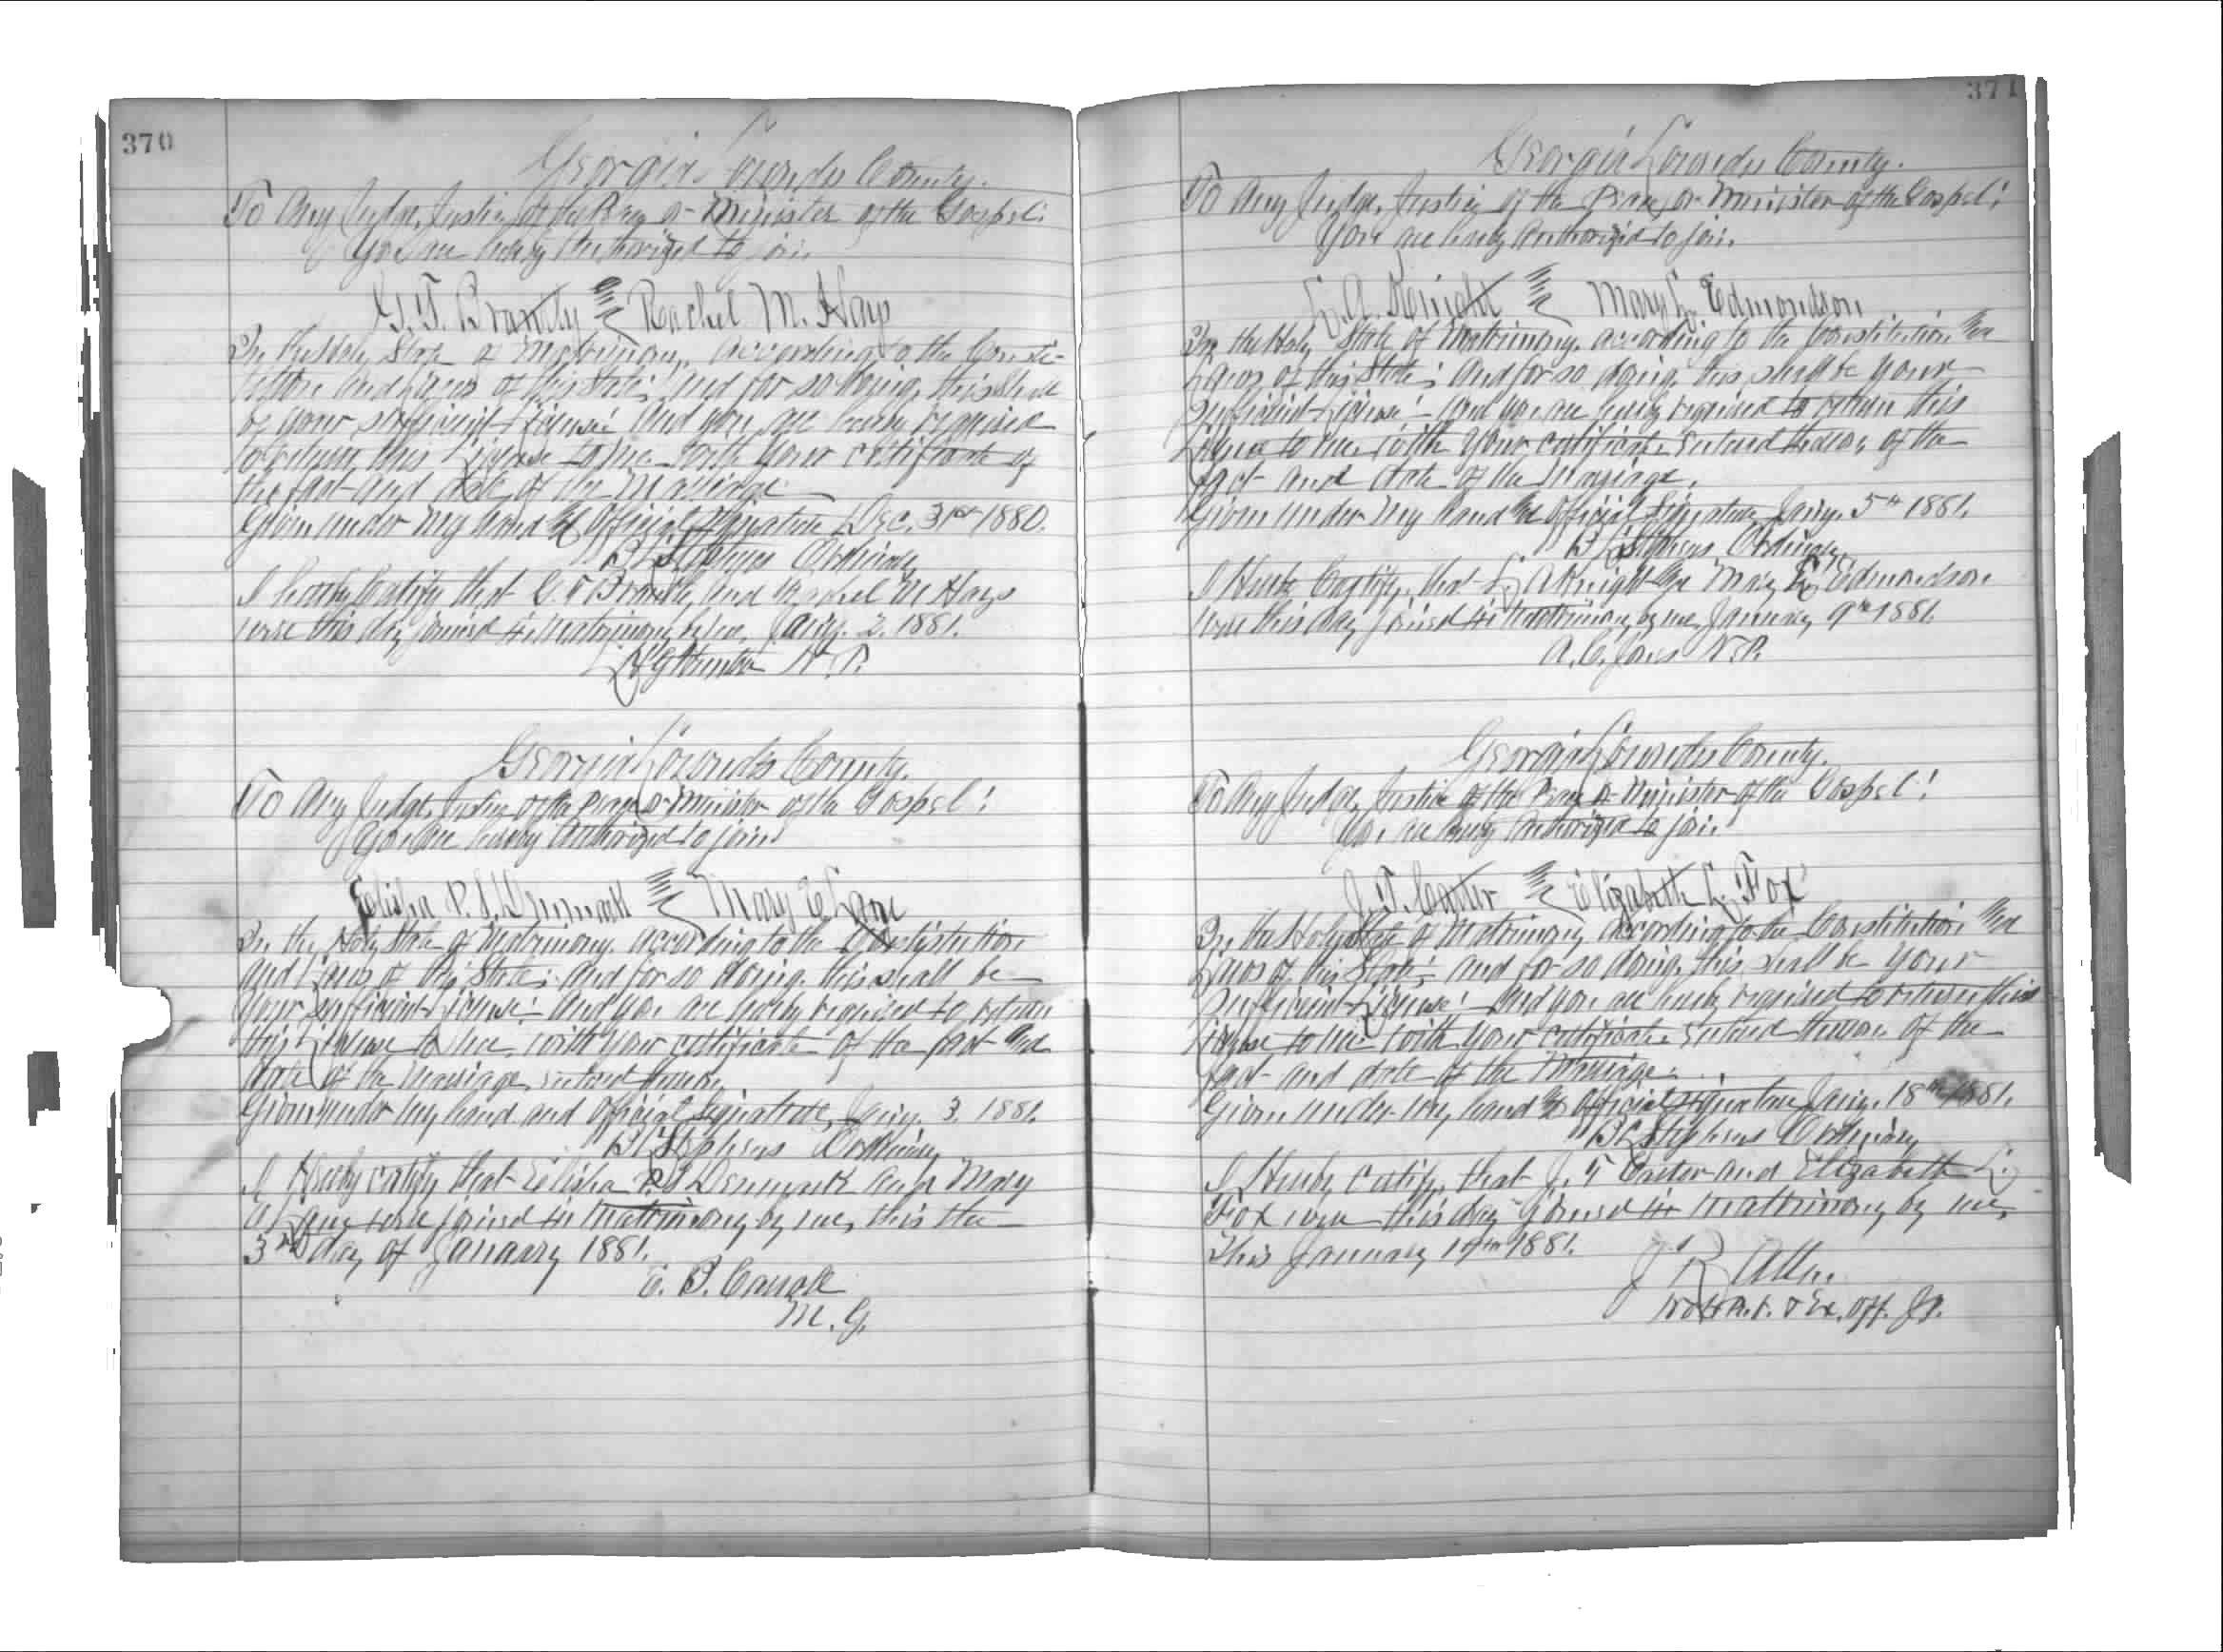 370
Georgia Lowndes County.
To Any Judge, Justice of the Peace or Minister of the Gospel:
You are hereby Authorized to join
G. T. Brantly and Rachel M. Hays
In the Holy State of Matrimony, according to the Consti-
tution and Laws of this State; and for so doing, this shall
be your sufficient License: And you are hereby required
to return this License to me with your certificate of
the fact and date of the Marriage.
Given under my hand & Official Signature Dec. 31st 1880.
Stephens Ordinary
I hereby Certify that G. T Brantly and Rachel M Hays
were this day joined in Matrimony by me, Jany. 2. 1881.
N. P.
Georgia Lowndes County.
To Any Judge, Justice of the Peace or Minister of the Gospel:
You are hereby Authorized to join
Elisha P. S. Denmark and Mary E Lane
In the Holy State of Matrimony. according to the Constitution
and Laws of this State; and for so doing. this shall be
your sufficient License: And you are hereby required to return
this License to me, with your certificate of the fact and
date of the Marriage, entered thereon.
Given under my hand and Official Signature, Jany. 3. 1881.
Stephens Ordinary
I Hereby certify that Elisha P. S Denmark and Mary
Lane were joined in Matrimony by me, this the
3rd day of January 1881.
M. G.
371
Georgia Lowndes County.
To Any Judge, Justice of the Peace, or Minister of the Gospel:
You are hereby Authorized to join.
L. A. Knight and Mary L. Edmondson
In the Holy State of Matrimony, according to the Constitution and
Laws of this State; And for so doing. this shall be your
sufficient License: and you are hereby required to return this
License to me, with your certificate entered thereon, of the
fact and date of the Marriage.
Given under my hand and Official Signature Jany. 5th 1881.
B L Stephens, Ordinary
I Hereby Certify, that L A Knight and Mary L. Edmondson
were this day joined in Matrimony by me, January 9th 1881.
A. C. Jones N. P.
Georgia Lowndes County.
To Any Judge, Justice of the Peace or Minister of the Gospel:
You are hereby Authorized to join.
J. T. Carter and Elizabeth L. Fox
In the Holy State of Matrimony according to the Constitution and
Laws of this State; and for so doing, this shall be your
sufficient License: and you are hereby required to return this
License to me with your certificate entered thereon of the
fact and date of the Marriage.
Given under my hand & Official Signature Jany. 18th 1881.
B L Stephens Ordinary
I Hereby Certify, that J. T Carter and Elizabeth L.
Fox were this day joined in Matrimony by me,
This January 1881.
J R
& Ex. Off. J.P.